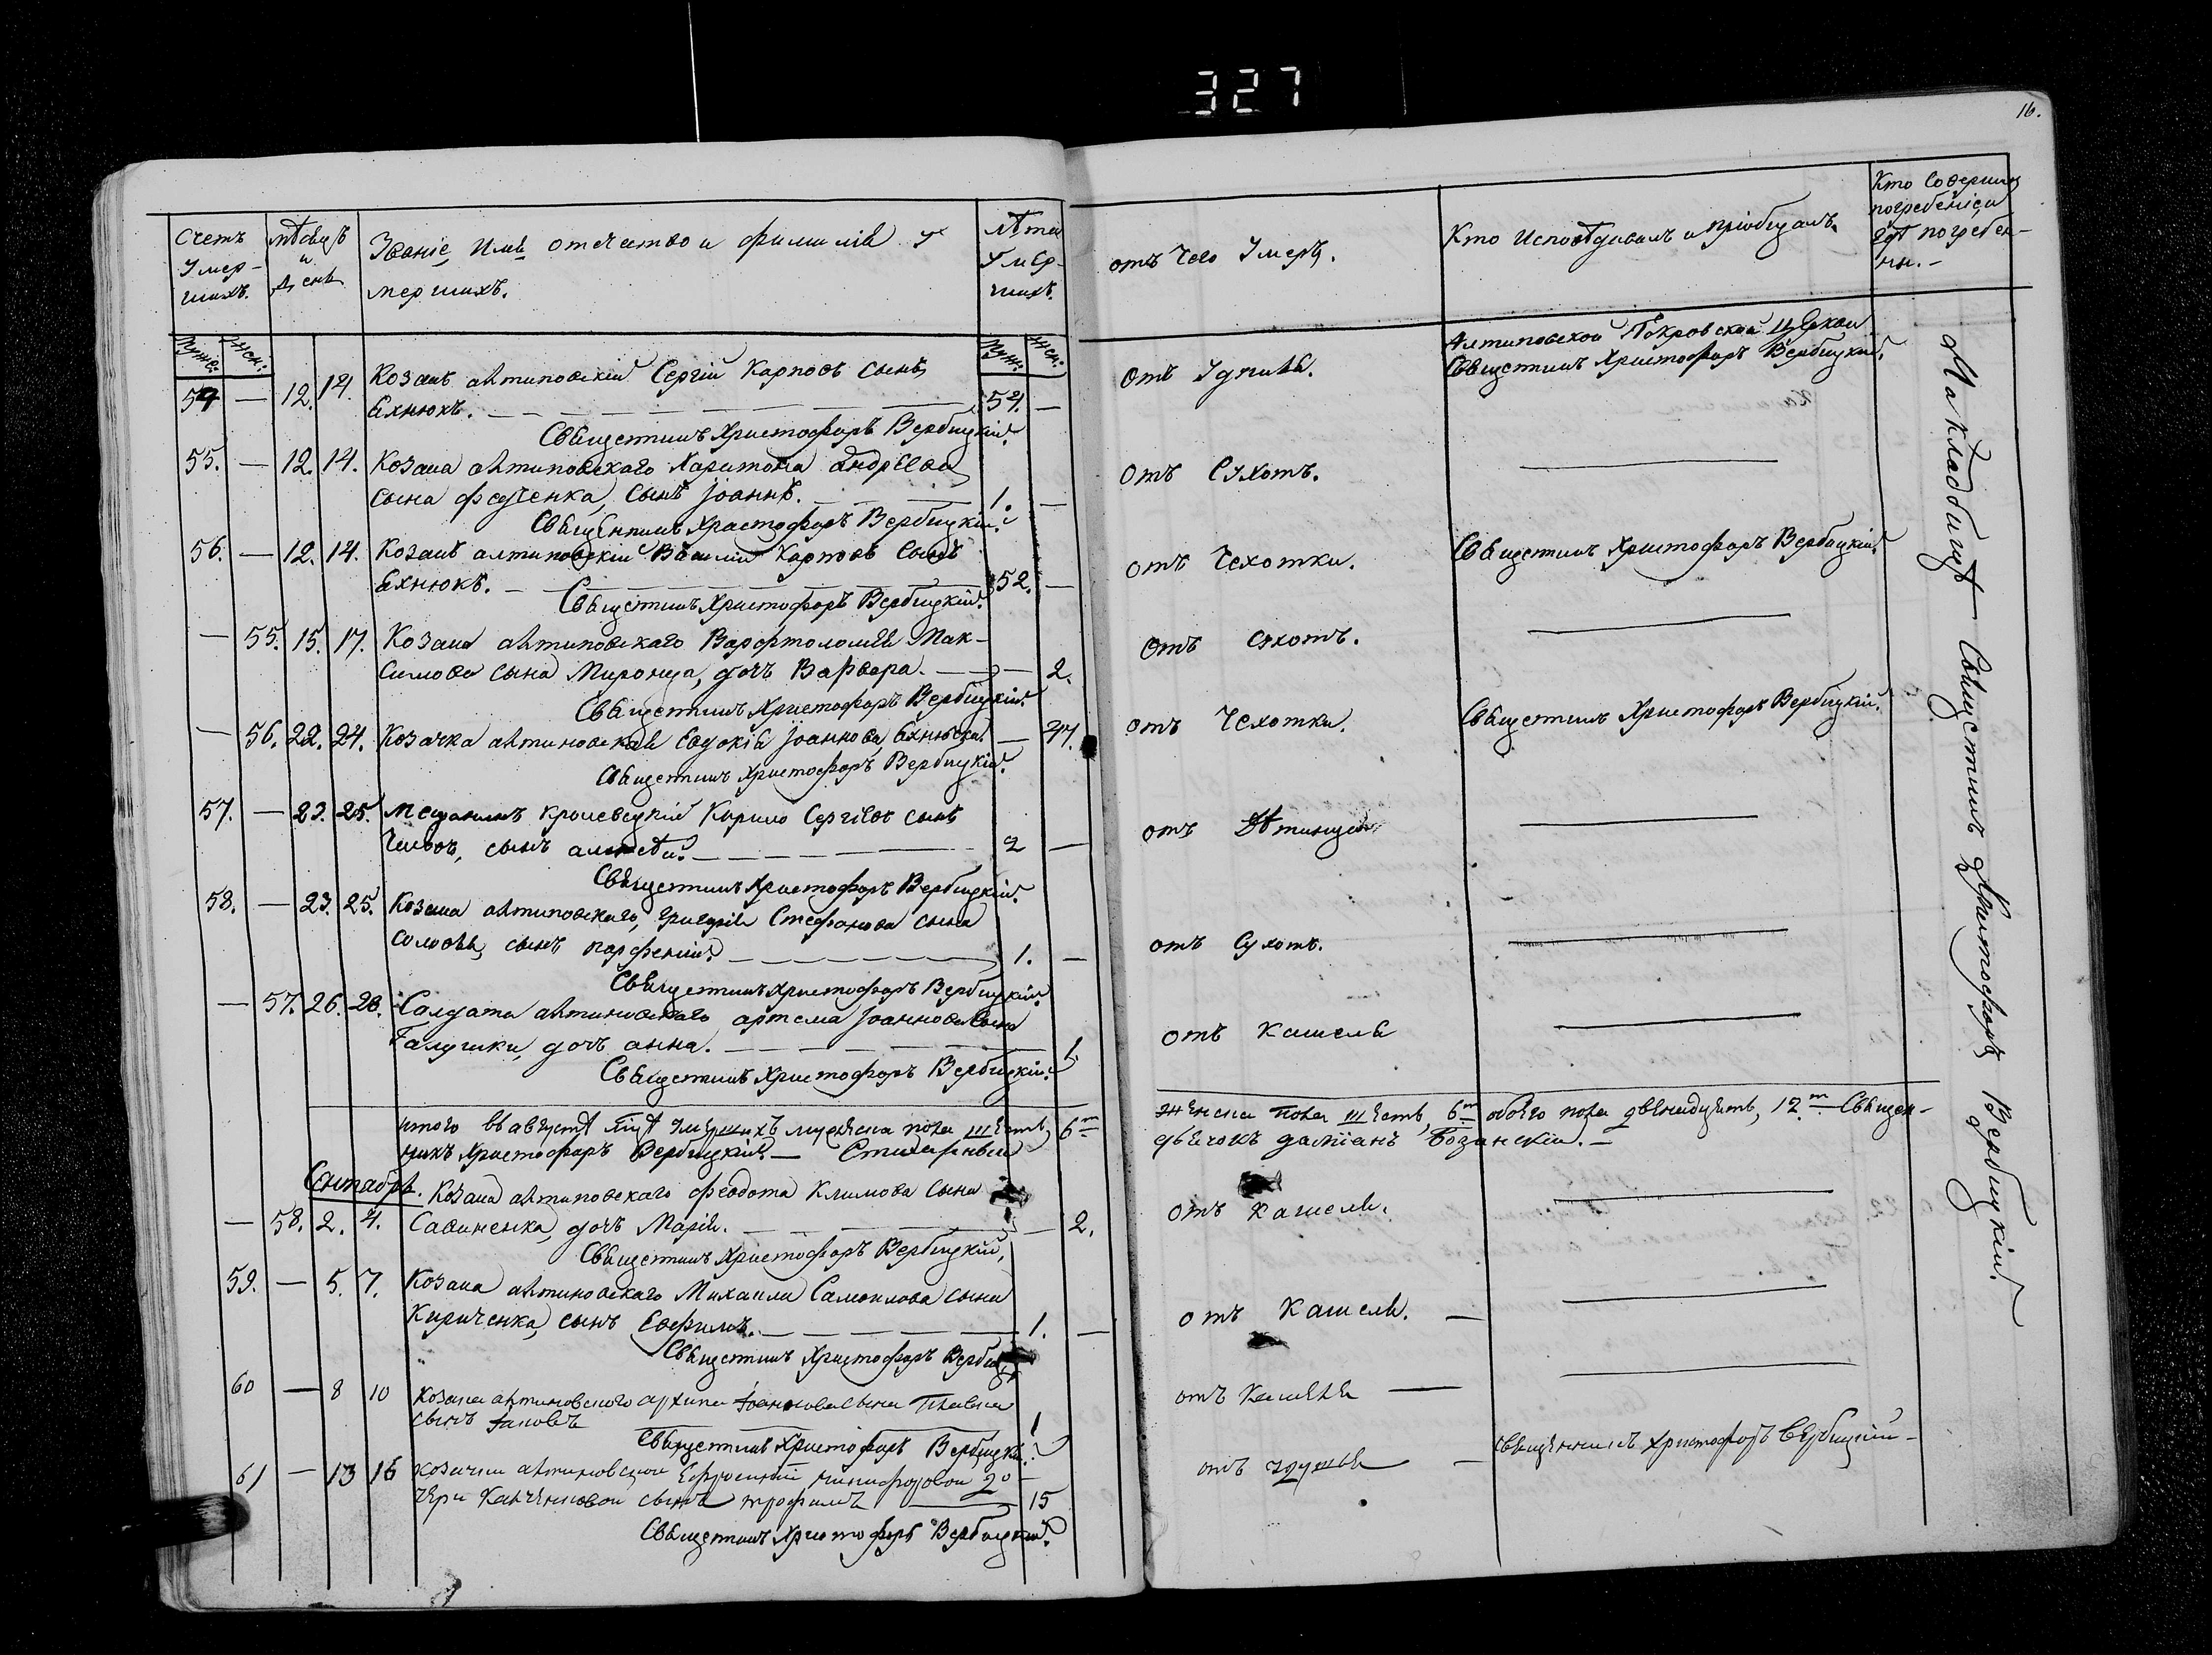 327
16.
Счетъ Умер-шихъ.
мѣсяцъ и день
Званіе, Имя отечество и фамилія у-мершихъ.
лѣта Умер-шихъ.
отъ чего Умеръ.
Кто Исповѣдывалъ и пріобщалъ.
Кто Совершалъ погребеніе и гдѣ погребен-ны.-
Муж: Жен:
Муж: Жен:
54 — 12. 14. Козакъ алтиновскій Сергій Карповъ Сынъ
Яхнюкъ. — 54. —
отъ Удушья.
Алтиновской Покровской Церкви
Священникъ Христофоръ Вербицкій.
Священникъ Христофоръ Вербицкій.
55. — 12. 14. Козака алтиновскаго Харитона Андреева
сына Федченка, Сынъ Іоаннъ. — 1. —
отъ Сухотъ. —
Священникъ Христофоръ Вербицкій.
56. — 12. 14. Козакъ алтиновскій Василій Карповъ Сынъ
Яхнюкъ. — 52. —
отъ Чехотки.
Священникъ Христофоръ Вербицкій.
Священникъ Христофоръ Вербицкій.
— 55. 15. 17. Козака алтиновскаго Варфтоломія Мак-
симова сына Миронца, дочь Варвара. — 2.
отъ сухотъ. —
Священникъ Христофоръ Вербицкій.
— 56. 22. 24. Козачка алтиновская Евдокія Іоаннова Яхнюкова. —
отъ Чехотки.
Священникъ Христофоръ Вербицкій.
Священникъ Христофоръ Вербицкій.
57. — 23. 25. Мещанинъ кролевецкій Кирило Сергіевъ сынъ
сынъ Алексѣй. — 2 —
отъ —
Священникъ Христофоръ Вербицкій.
58. — 23. 25. Козака алтиновскаго, Григорія Стефанова сына
Соловья, сынъ Парфеній. — 1. —
отъ Сухотъ. —
Священникъ Христофоръ Вербицкій.
— 57. 26. 28. Салдата алтиновскаго Артема Іоаннова Сына
Галушки, дочь Анна. — 1.
отъ Кашеля —
Священникъ Христофоръ Вербицкій.
итого въ августѣ умершихъ мужеска пола шесть, 6ᵐ
женска пола шесть, 6ᵐ обоего пола двенадцать, 12ᵐ — Священ-
никъ Христофоръ Вербицкій. — Стихарный
дьячокъ Даміанъ Бозанскій. —
Сентябрь. Козака алтиновскаго Феодота Климова Сына
— 58. 2. 4. Савиненка, дочь Марія. — 2.
отъ Кашеля. —
Священникъ Христофоръ Вербицкій.
59. — 5. 7. Козака алтиновскаго Михаила Самоилова сына
Кириченка, сынъ Евфимъ. — 1. —
отъ Кашеля. —
Священникъ Христофоръ
60 — 8 10 Козака алтиновского Архипа Іоаннова сына
сынъ Іаковъ 1
отъ Кашеля —
Священникъ Христофоръ Вербицкій.
61 — 13 16 Козачки алтиновской Ефросиніи Никифоровой
сынъ Трофимъ — 15
отъ —
Священникъ Христофоръ Вербицкій —
Священникъ Христофоръ Вербицкій.
На кладбищѣ — Священникъ Христофоръ Вербицкій.